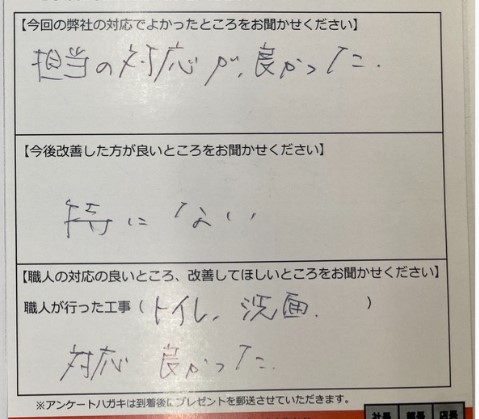 【今回の弊社の対応でよかったところをお聞かせください】
担当の対応が、良かった.
【今後改善した方が良いところをお聞かせください】
特にない
【職人の対応の良いところ、改善してほしいところをお聞かせください】
職人が行った工事（トイレ、洗面.）
対応 良かった.
※アンケートハガキは到着後にプレゼントを郵送させていただきます。
社長 部長 店長